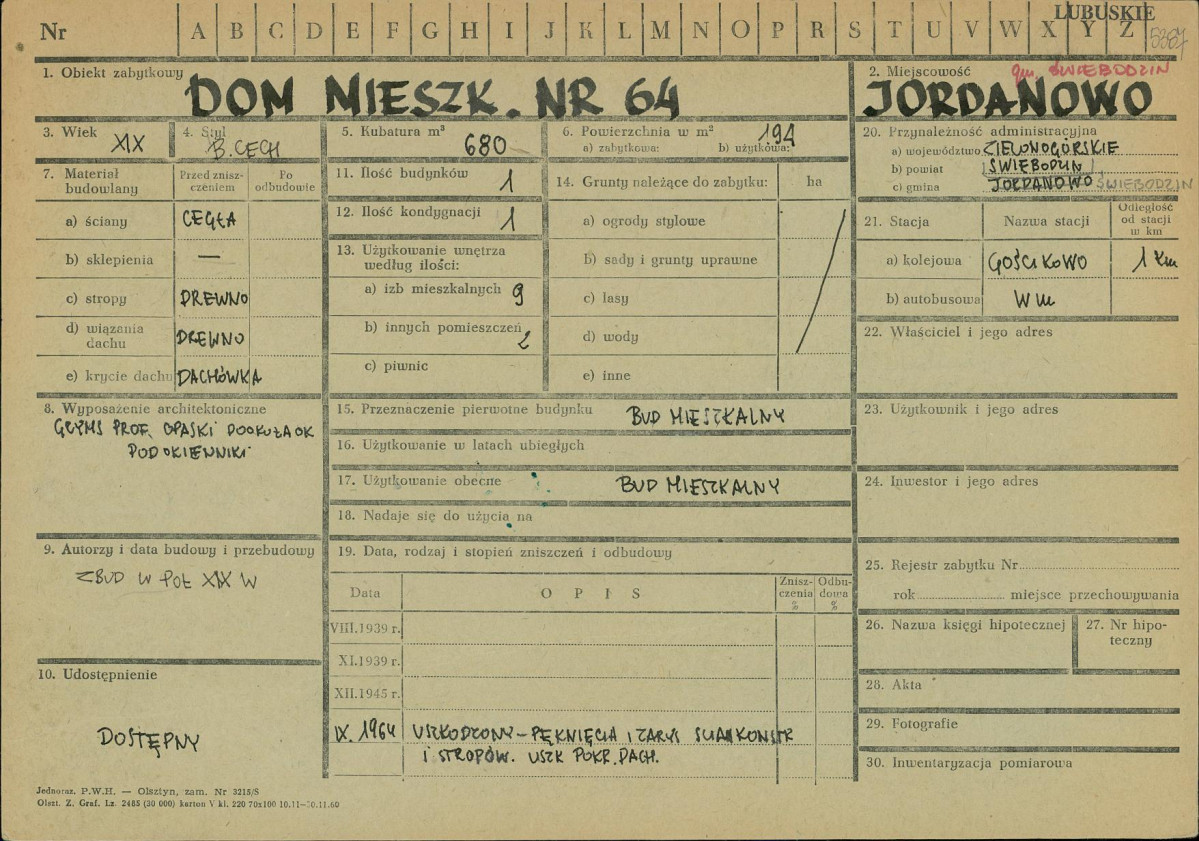 LUBUSKIE
Nr A B C D E F G H I J K L M N O P R S T U V W X Y Z 5387
1. Obiekt zabytkowy DOM MIESZK. NR 64
2. Miejscowość gm. ŚWIEBODZIN
JORDANOWO
3. Wiek XIX
4. Styl B. CECH
5. Kubatura m³ 680
6. Powierzchnia w m² 194
a) zabytkowa: b) użytkowa:
20. Przynależność administracyjna
a) województwo ZIELONOGÓRSKIE
b) powiat ŚWIEBODZIN
c) gmina JORDANOWO ŚWIEBODZIN
7. Materiał budowlany
Przed zniszczeniem
Po odbudowie
a) ściany CEGŁA
b) sklepienia —
c) stropy DREWNO
d) wiązania dachu DREWNO
e) krycie dachu DACHÓWKA
11. Ilość budynków 1
12. Ilość kondygnacji 1
13. Użytkowanie wnętrza
według ilości:
a) izb mieszkalnych 9
b) innych pomieszczeń 2
c) piwnic
14. Grunty należące do zabytku: ha
a) ogrody stylowe
b) sady i grunty uprawne
c) lasy
d) wody
e) inne
21. Stacja
Nazwa stacji
Odległość od stacji w km
a) kolejowa GOŚCIKOWO 1 km
b) autobusowa W m
22. Właściciel i jego adres
8. Wyposażenie architektoniczne
GZYMS PROF. OPASKI DOOKOŁA OK
PODOKIENNIKI
15. Przeznaczenie pierwotne budynku BUD MIESZKALNY
16. Użytkowanie w latach ubiegłych
17. Użytkowanie obecne BUD MIESZKALNY
18. Nadaje się do użycia na
23. Użytkownik i jego adres
24. Inwestor i jego adres
9. Autorzy i data budowy i przebudowy
ZBUD W POŁ XIX W
19. Data, rodzaj i stopień zniszczeń i odbudowy
Data O P I S Zniszczenia % Odbudowa %
VIII.1939 r.
XI.1939 r.
XII.1945 r.
IX. 1964 USZKODZONY – PĘKNIĘCIA I ZARYS ŚCIAN KONSTR
I STROPÓW. USZK POKR. DACH.
25. Rejestr zabytku Nr
rok miejsce przechowywania
26. Nazwa księgi hipotecznej
27. Nr hipoteczny
28. Akta
29. Fotografie
30. Inwentaryzacja pomiarowa
10. Udostępnienie
DOSTĘPNY
Jednoraz. P.W.H. — Olsztyn, zam. Nr 3215/S
Olszt. Z. Graf. Lz. 2485 (30 000) karton V kl. 220 70x100 10.11—30.11.60